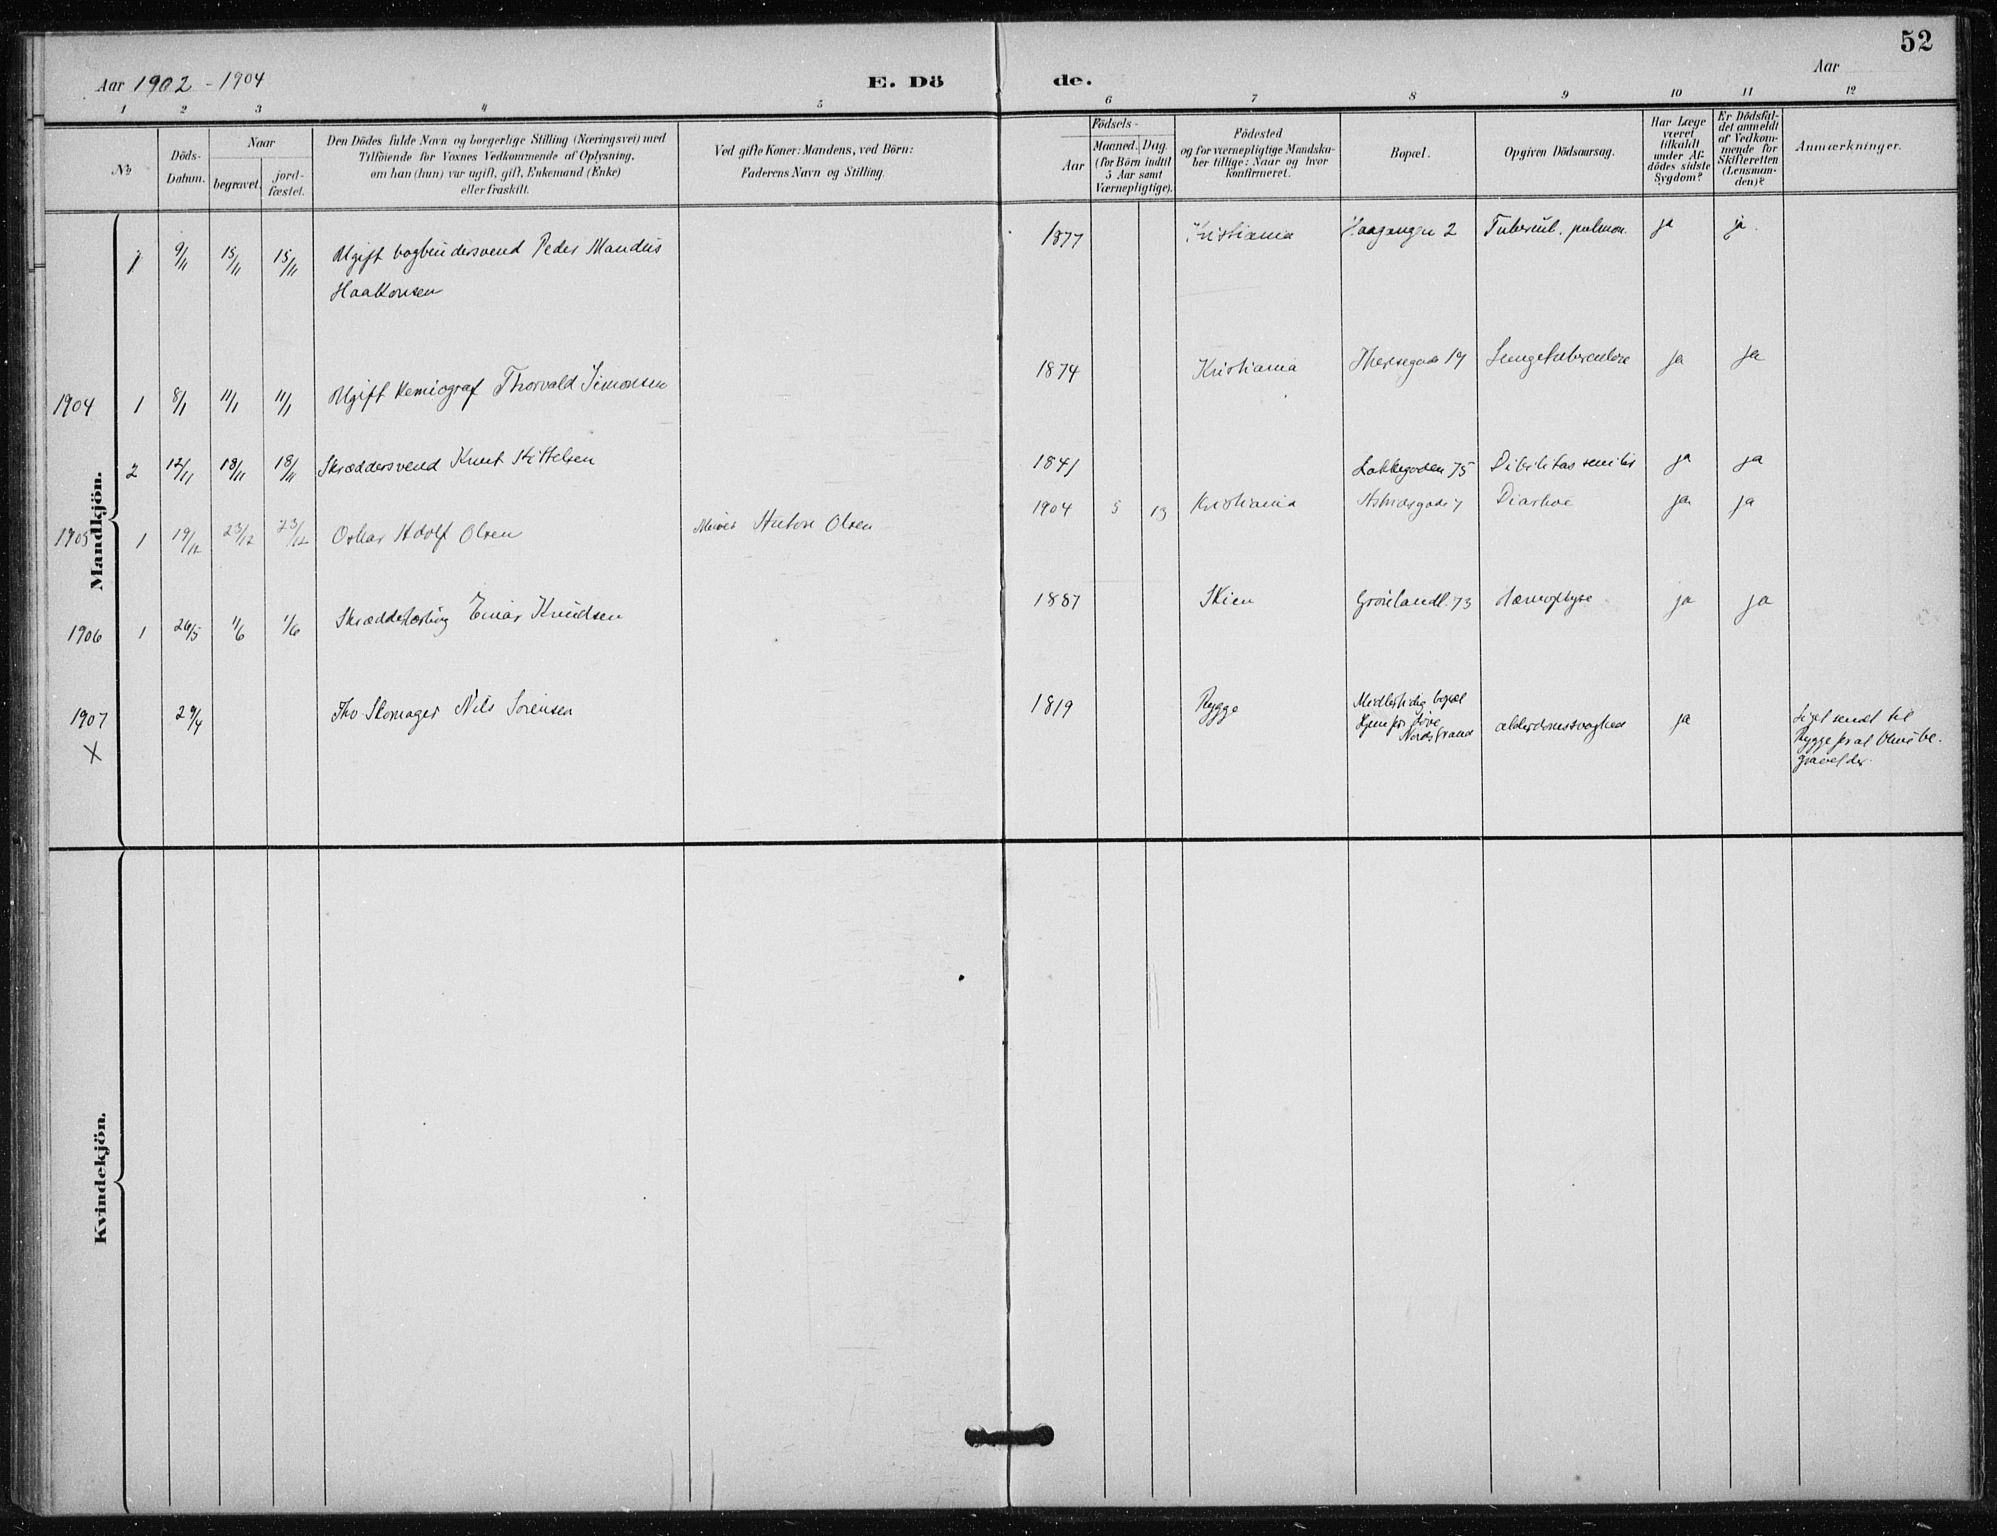 52
Aar 1902 - 1904
E. Dö de.
Aar
1 2 3 4 5 6 7 8 9 10 11 12
No
Döds-
Datum.
Naar
begravet.
jord-
fæstet.
Den Dödes fulde Navn og borgerlige Stilling (Næringsvei) med
Tilföiende for Voxnes Vedkommende af Oplysning,
om han (hun) var ugift, gift, Enkemand (Enke)
eller fraskilt.
Ved gifte Koner: Mandens, ved Börn:
Faderens Navn og Stilling.
Födsels-
Aar
Maaned. Dag.
(for Börn indtil
5 Aar samt
Værnepligtige).
Födested
og for værnepligtige Mandska-
ber tillige: Naar og hvor
konfirmeret.
Bopæl.
Opgiven Dödsaarsag.
Har Læge
været
tilkaldt
under Af-
dödes sidste
Sygdom?
Er Dödsfal-
det anmeldt
af Vedkom-
mende for
Skifteretten
(Lensman-
den)?
Anmærkninger.
Mandkjön.
1 9/11 15/11 15/11 Ugift bogbindersvend Peder Mandus 1877 Kristiania 2 Tubercul. pulmon. ja ja.
Haakonsen
1904 1 8/1 11/1 11/1 Ugift Kemiograf Thorvald Simonsen 1874 Kristiania Theresegade 19 Lungetuberculose ja ja
2 12/11 18/11 18/11 Skræddersvend Knut Kittelsen 1841 Lakkegaden 75 Debilitas senilis ja ja
1905 1 19/12 23/12 23/12 Oskar Adolf Olsen Murer Anton Olsen 1904 5 13 Kristiania Diarhoe ja ja
1906 1 26/5 1/6 1/6 Skrædderlærling Einar Knudsen 1887 Skien Grönlandl. 73 Hæmoptyse ja ja
1907 29/4 Fhv Skomager Nils Sorensen 1819 Rygge Midlertidig bopæl
Hjem for döve
Nordstrand alderdomssvaghed ja Liget sendt til
Rygge for at blive be-
gravet der.
X
Kvindekjön.